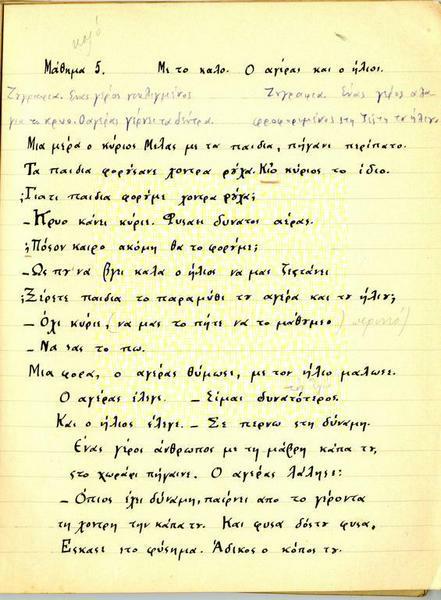 καλό
Μάθημα 5. Με το καλο. Ο αγέρας και ο ήλιος.
Ζυγραφια. Ενας γέρος τυλιγμένος Ζυγραφια. Ενας γέρος αλα-
για το κρυο. Ο αγέρας γέρνει τα δέντρα. στη ζέστη του ήλιου
Μια μέρα ο κύριος Μελας με τα παιδια, πήγανε περίπατο.
Τα παιδια φορύσανε χοντρα ρύχα. Κιο κύριος το ίδιο.
;Γιατι παιδια φορύμε χοντρα ρύχα;
– Κρυο κάνει κύριε. Φυσαει δυνατος αέρας.
;Πόσον καιρο ακόμη θα το φορύμε;
– Ως πυ να βγει καλα ο ήλιος να μας ζεστάνει
;Ξέρετε παιδια το παραμύθι τυ αγέρα και τυ ήλιυ;
– Όχι κύριε, (να μας το πήτε να το μάθυμε)
– Να σας το πω.
Μια φορα, ο αγέρας θύμωσε, με τον ήλιο μαλωσε.
Ο αγέρας έλεγε. – Είμαι δυνατότερος.
Και ο ήλιος έλεγε. – Σε περνω στη δύναμη.
Ενας γέρος άνθρωπος με τη μάβρη κάπα τυ,
στο χωράφι πήγαινε. Ο αγέρας λάλησε:
– Όπιος έχει δύναμη, παίρνει απο το γέροντα
τη χοντρη την κάπα τυ. Και φυσα δόστυ φυσα,
Εσκασε στο φύσημα. Άδικος ο κόπος τυ.